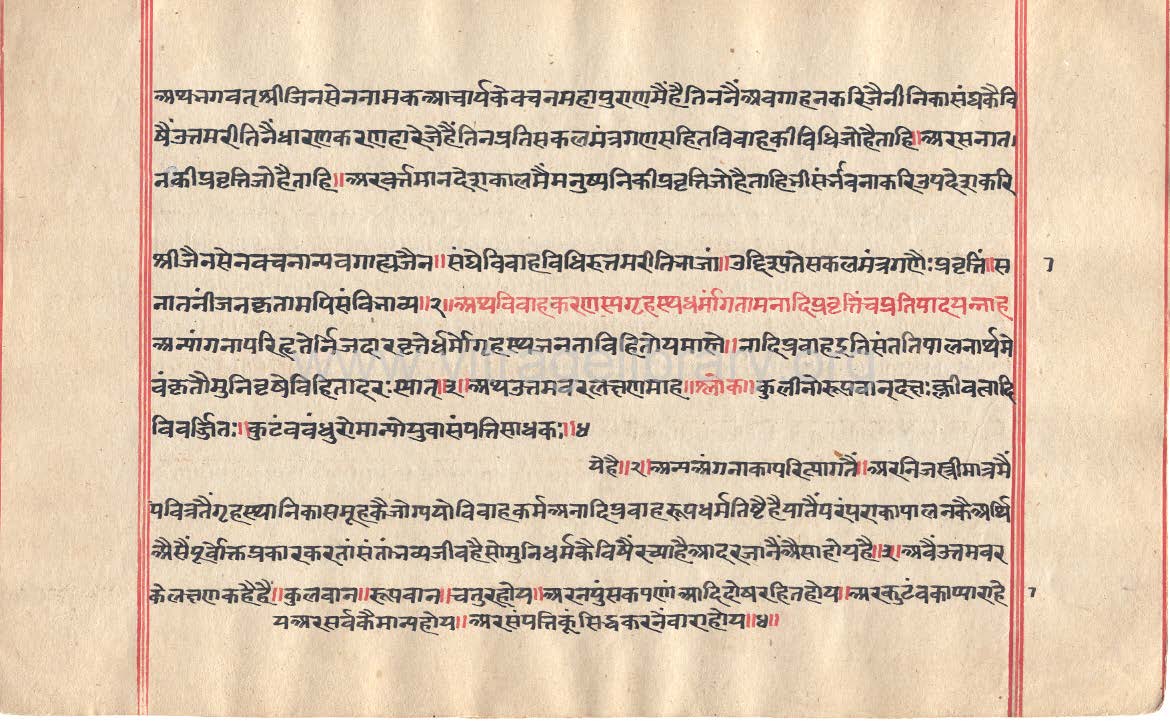 अथ भगवत् श्रीजिनसेननामक आचार्यके वचन महापुराणमैं है तिननैं अवगाहन करि जैनीनिका संघकै वि
षैं उत्तम रीतिनैं धारण करणहारे जे हैं तिन प्रति सकल मंत्रगण सहित विवाहकी विधि जो है ताहि॥ अर सनात।
नकी प्रवृत्ति जो है ताहि॥ अर वर्त्तमान देशकालमैं मनुष्यनिकी प्रवृत्ति जो है ताहि भी संर्भावनाकरि उपदेशकरि
श्रीजैनसेनवचनान्यवगाह्य जैन॥ संघे विवाहविधिरुत्तमरीतिभाजां॥ उद्दिश्यते सकलमंत्रगणैः प्रवृत्तिं॥ स 7
नातनीं जनकृतामपि संविभाव्य॥२॥ अथ विवाहकरणस्य गृहस्थधर्मागतामनादिप्रवृत्तिं च प्रतिपादयन्नाह
अन्यांगनापरिहृतेर्निजदारवृत्तेर्धर्मो गृहस्थजनताविहितोयमास्ते॥ नादिप्रवाह इति संततिपालनार्थमे
वं कृतौ मुनिवृषे विहितादरः स्यात्॥३॥ अथ उत्तमवरलक्षणमाह॥ श्लोक॥ कुलीनो रूपवान् दक्षः क्लीवत्वादि
विवर्ज्जितः॥ कुटंबबंधुरो मान्यो युवा संपत्तिसाधकः॥४
येहै॥२॥ अन्य अंगनाका परित्यागतैं॥ अर निजस्त्रीमात्रमैं
पवित्रतैं गृहस्थानिका समूहकै जोग्य यो विवाहकर्म अनादिप्रवाहरूप धर्म तिष्टै है यातैं परंपराका पालनकै अर्थि
अैसैं पूर्वोक्त प्रकार करतां संतां भव्यजीव है सो मुनिधर्मकै विषैं रच्या है आदर जानैं अैसा होय है॥३॥ अवैं उत्तम वर
के लक्षण कहै हैं॥ कुलवान॥ रूपवान॥ चतुर होय॥ अर नपुंसकपणां आदि दोष रहित होय॥ अर कुटंबका प्यारा हे 7
य अर सर्वकै मान्य होय॥ अर संपत्तिकूं सिद्ध करनेंवारा होय॥४॥
www.vitragelibrary.org